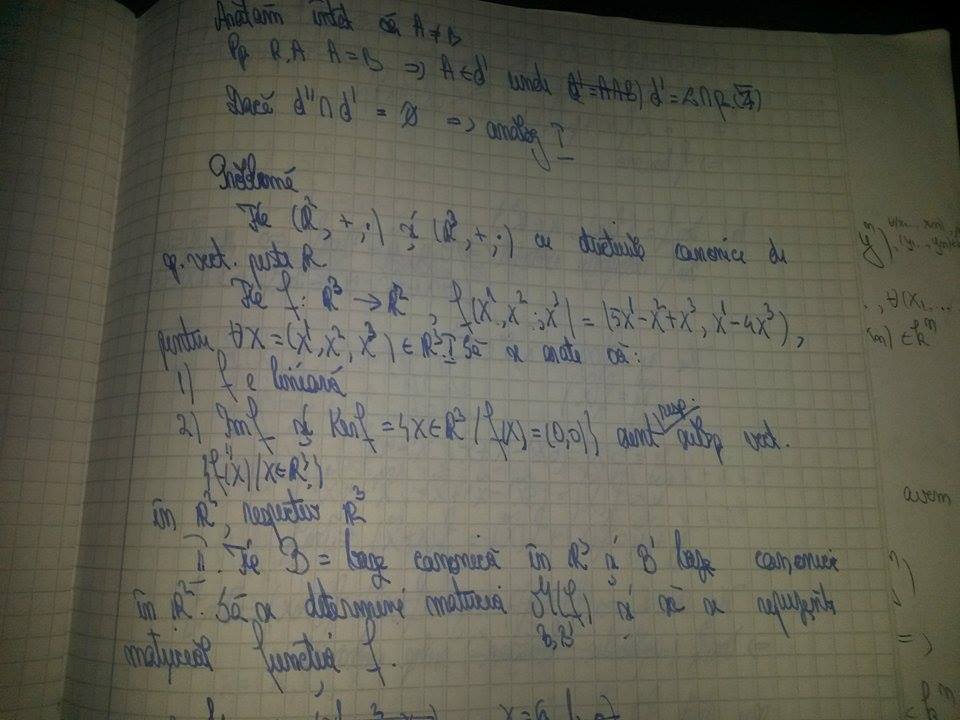 Arătăm întâi că A ≠ B
Pp R.A A = B => A ∈ d' unde d' =
Dacă d'' ∩ d' = ∅ => analog I
Problemă
Fie (R², +, ·) și (R³, +, ·) cu structurile canonice de
sp. vect. peste R
Fie f: R³ → R², f(x¹, x², x³) = (5x¹ - x² + x³, x¹ - 4x³),
pentru ∀ x = (x¹, x², x³) ∈ R³. I Să se arate că:
1) f e liniară
2) Im f și Ker f = {x ∈ R³ / f(x) = (0,0)} sunt subsp vect.
resp.
{f(x) / x ∈ R³}
în R², respectiv R³
ii. Fie B = baza canonică în R³ și B' baza canonică
în R². Să se determine matricea M(f) și să se reprezinte
B, B'
matricial funcția f.
avem
=>